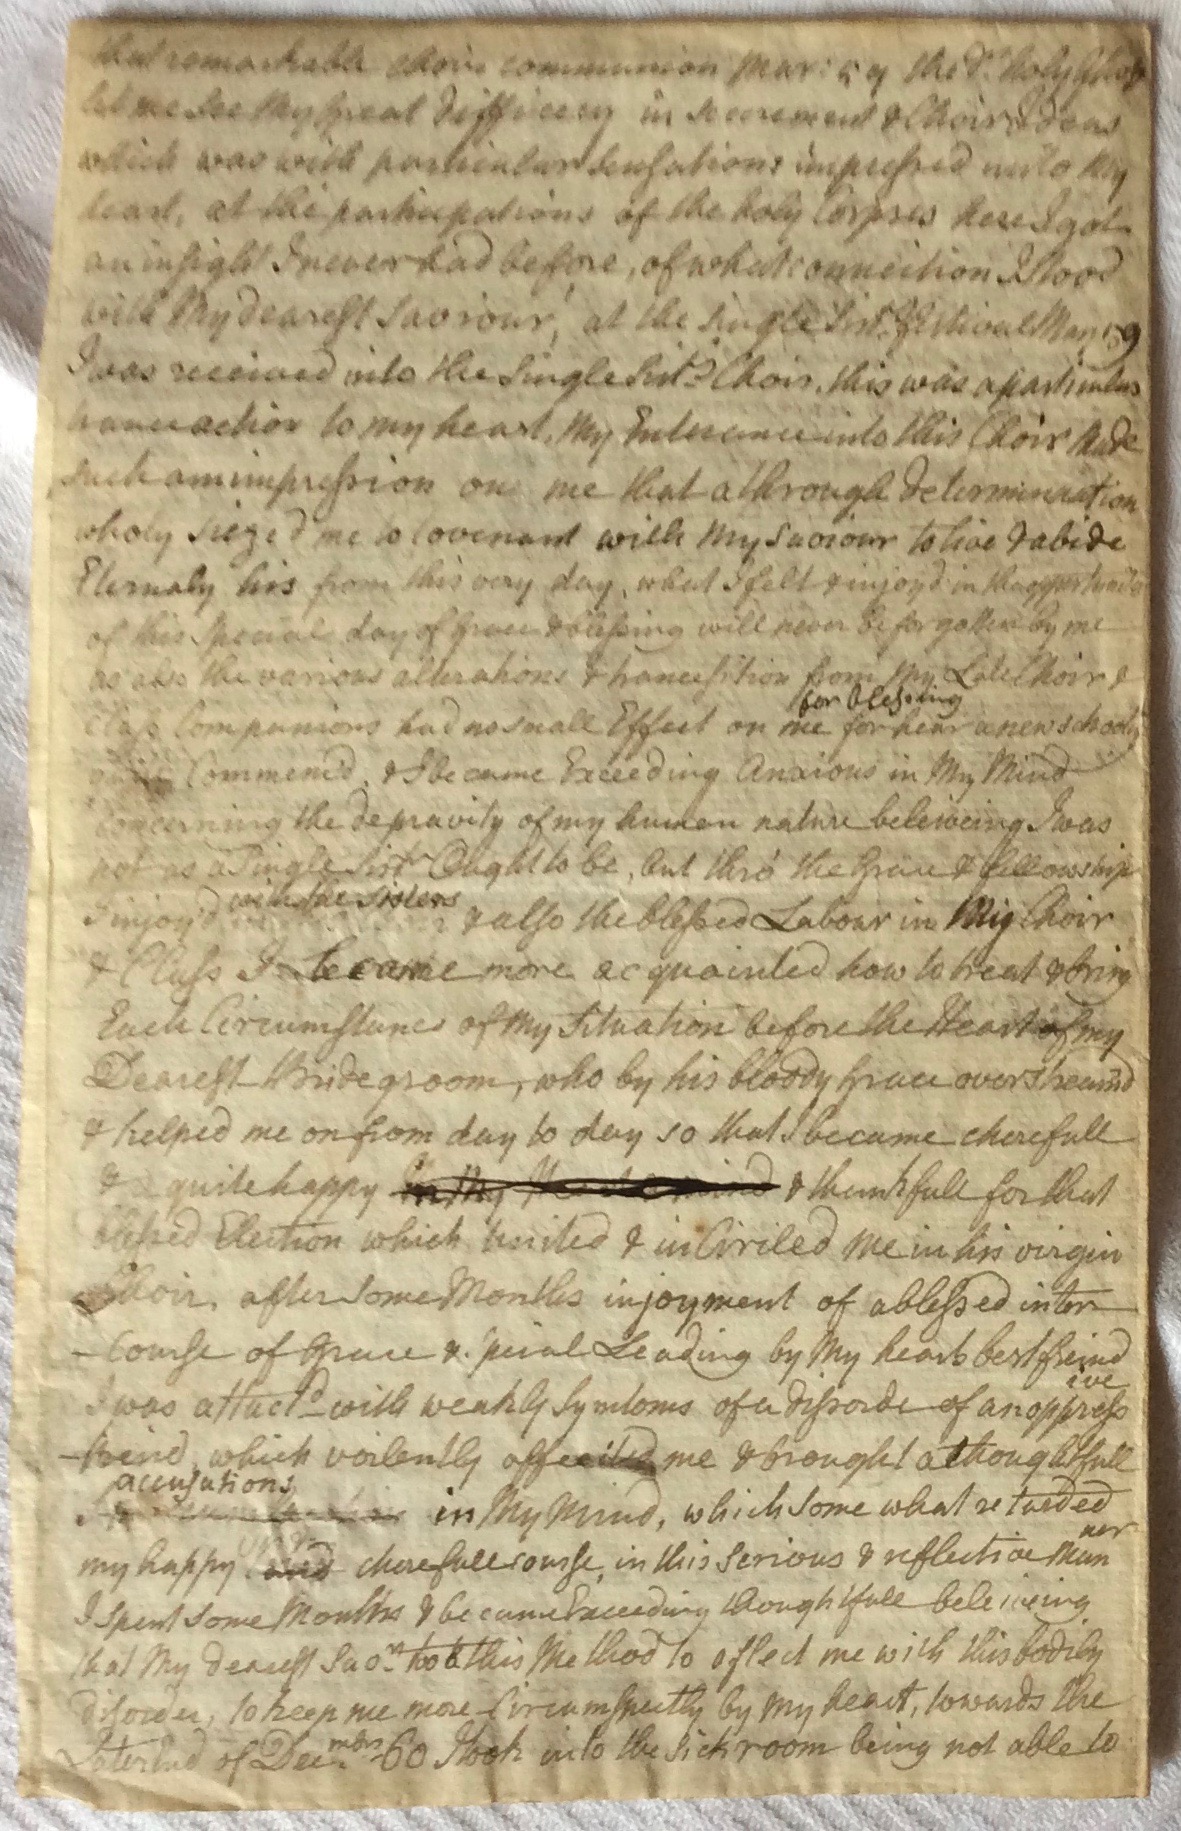 that remarkable choir communion Mar: 5 9 the dr. holy Ghost
let me see my great difficecy in sacrement & Choir Ideas
which was with particular sensations impressed unto My
heart, at the participations of the holy Corpses here I got
an insight I never had before, of what connection I stood
with My dearest Saviour, at the single Sistrs festival May 59
I was received into the Single Sistrs Choir, this was a particular
trancaction to my heart, My Enterance into this Choir made
such an impression on me that a through determination
wholy siezed me to covenant with My Saviour to live & abide
Eternaly his from this very day, what I felt & injoyd in the
of this special day of grace & blessing will never be forgotten by me
as also the various alterations & trancesition from My Late Choir &
Class Companions had no small Effect on me for blessing for hear a new school
Commenc'd, & I became Exceeding Anxious in My Mind
concerning the depravity of my human nature beleiveing I was
not as a Single Sistr Ought to be, but thro' the Grace & fellowship
I injoy'd with the sisters & also the blessed Labour in My Choir
& Class I became more acquainted how to treat & bring
Each Circumstance of My Situation before the Heart of my
Dearest Bridegroom, who by his bloody Grace overstreamd
& helped me on from day to day so that I became cherefull
& quite happy in My Heart & mind & thankfull for that
blessed Election which united & inCiricled me in his virgin
Choir, after some Months injoyment of a blessed inter
-Course of Grace & Leading by My hearts best freind
I was attact'd with weakly symtoms of a dissorde of an oppress
ive
-kind, which voilently affected me & brought a thoughtfull
accusations
in My Mind, which some what retarded
my happy and cherefull course, in this serious & reflective Man
ner
I spent some Months & became Exceeding thoughtfull beleiveing
that My dearest Savr. took this Method to aflect me with this bodily
disorder, to keep me more Circumspectly by my heart, towards the
Later End of Decmbr 60 I took into the sick room being not able to